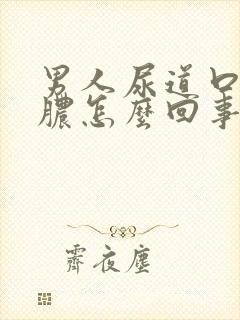 男人尿道口
膿怎麼回事
霽夜塵